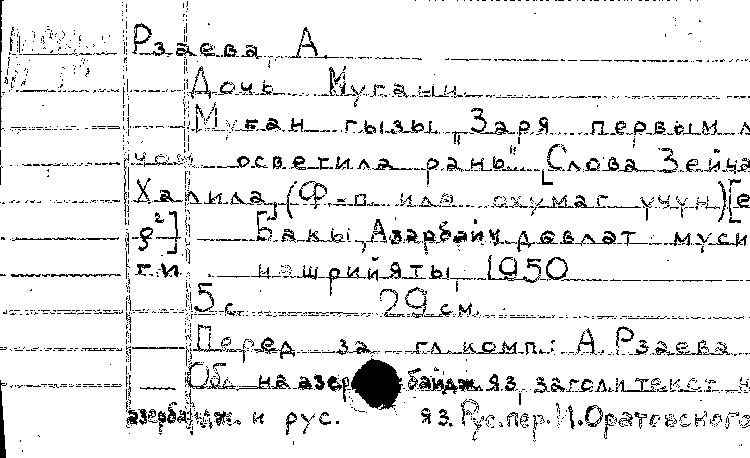 Рзаева, А.
Дочь Мугани.
Муған гызы. "Заря первым л
чом осветила рань". [Слова Зейна
Халила] (Ф-п. илә охумаг үчүн) [e
g²] Бакы, Азәрбайҹ. дөвләт муси
ги нәшриййаты, 1950
5 с. 29 см.
Перед за гл. комп.: А. Рзаева
Обл. на азер байдж. яз, загол. и текст н
азербайдж. и рус. яз. Рус. пер. И. Оратовского